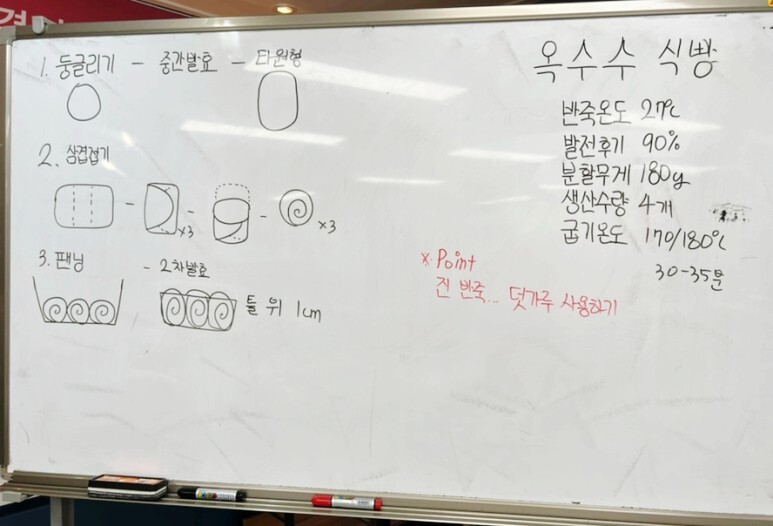 1. 둥글리기 - 중간발효 - 타원형
2. 삼겹접기
- - - x3
x3
3. 팬닝 - 2차발효
틀 위 1cm
옥수수 식빵
반죽온도 27℃
발전후기 90%
분할무게 180g
생산수량 4개
굽기온도 170/180℃
30-35분
※ Point
진 반죽... 덧가루 사용하기